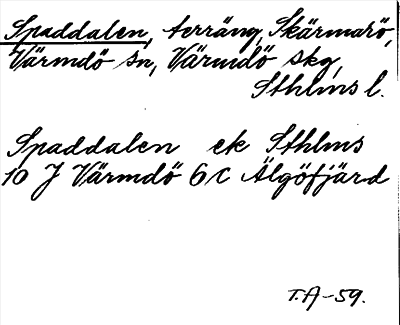 Spaddalen, terräng, Skärmarö,
Värmdö sn, Värmdö skg,
Sthlms l.
Spaddalen ek Sthlms
10 J Värmdö 6c Älgöfjärd
T.A-59.